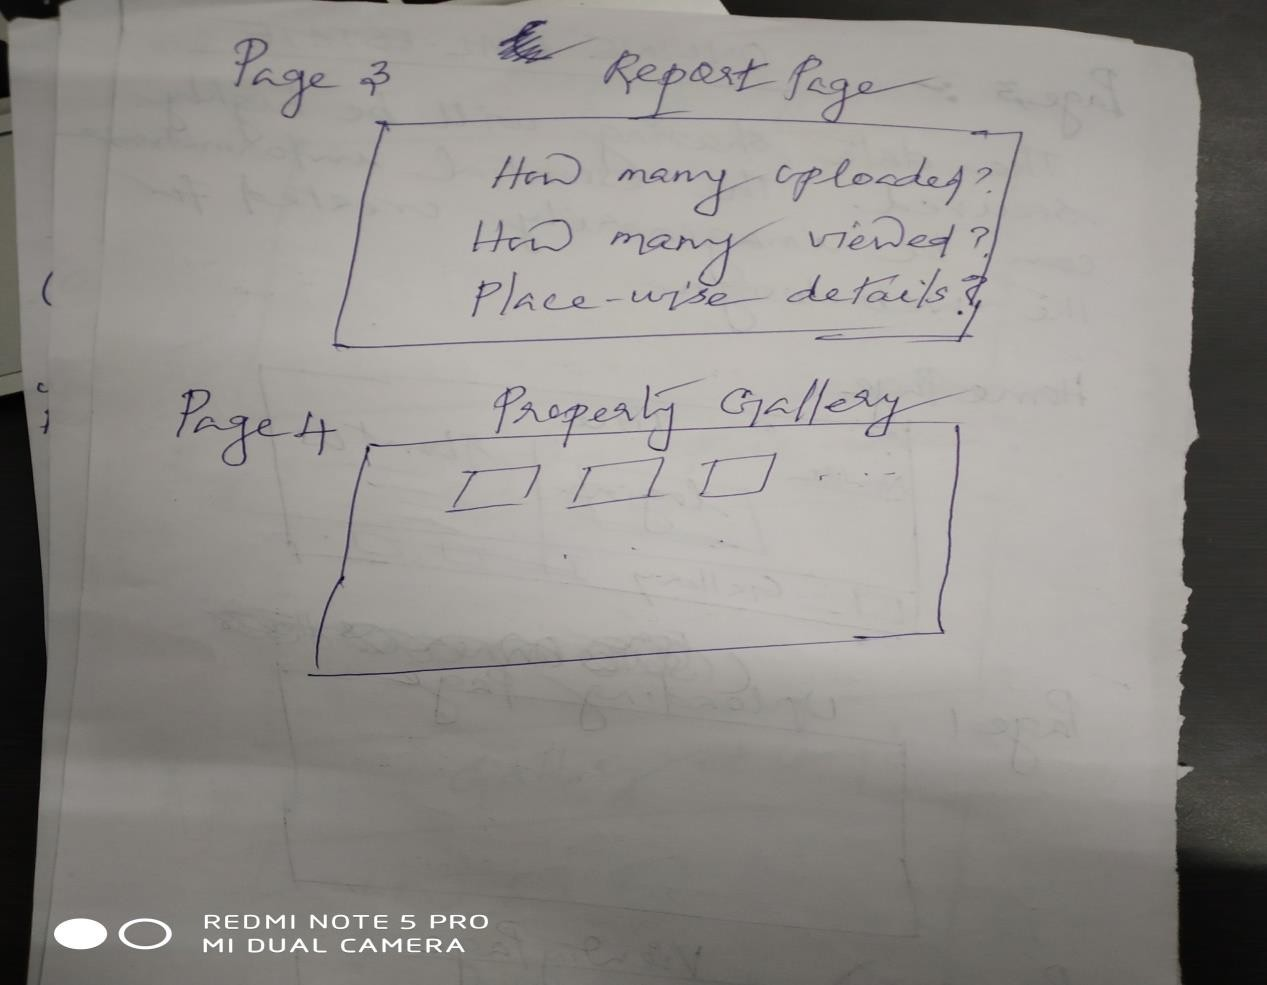 Page 3
Report Page
How many uploaded?
How many viewed?
Place-wise details?
Page 4
Property Gallery
REDMI NOTE 5 PRO
MI DUAL CAMERA